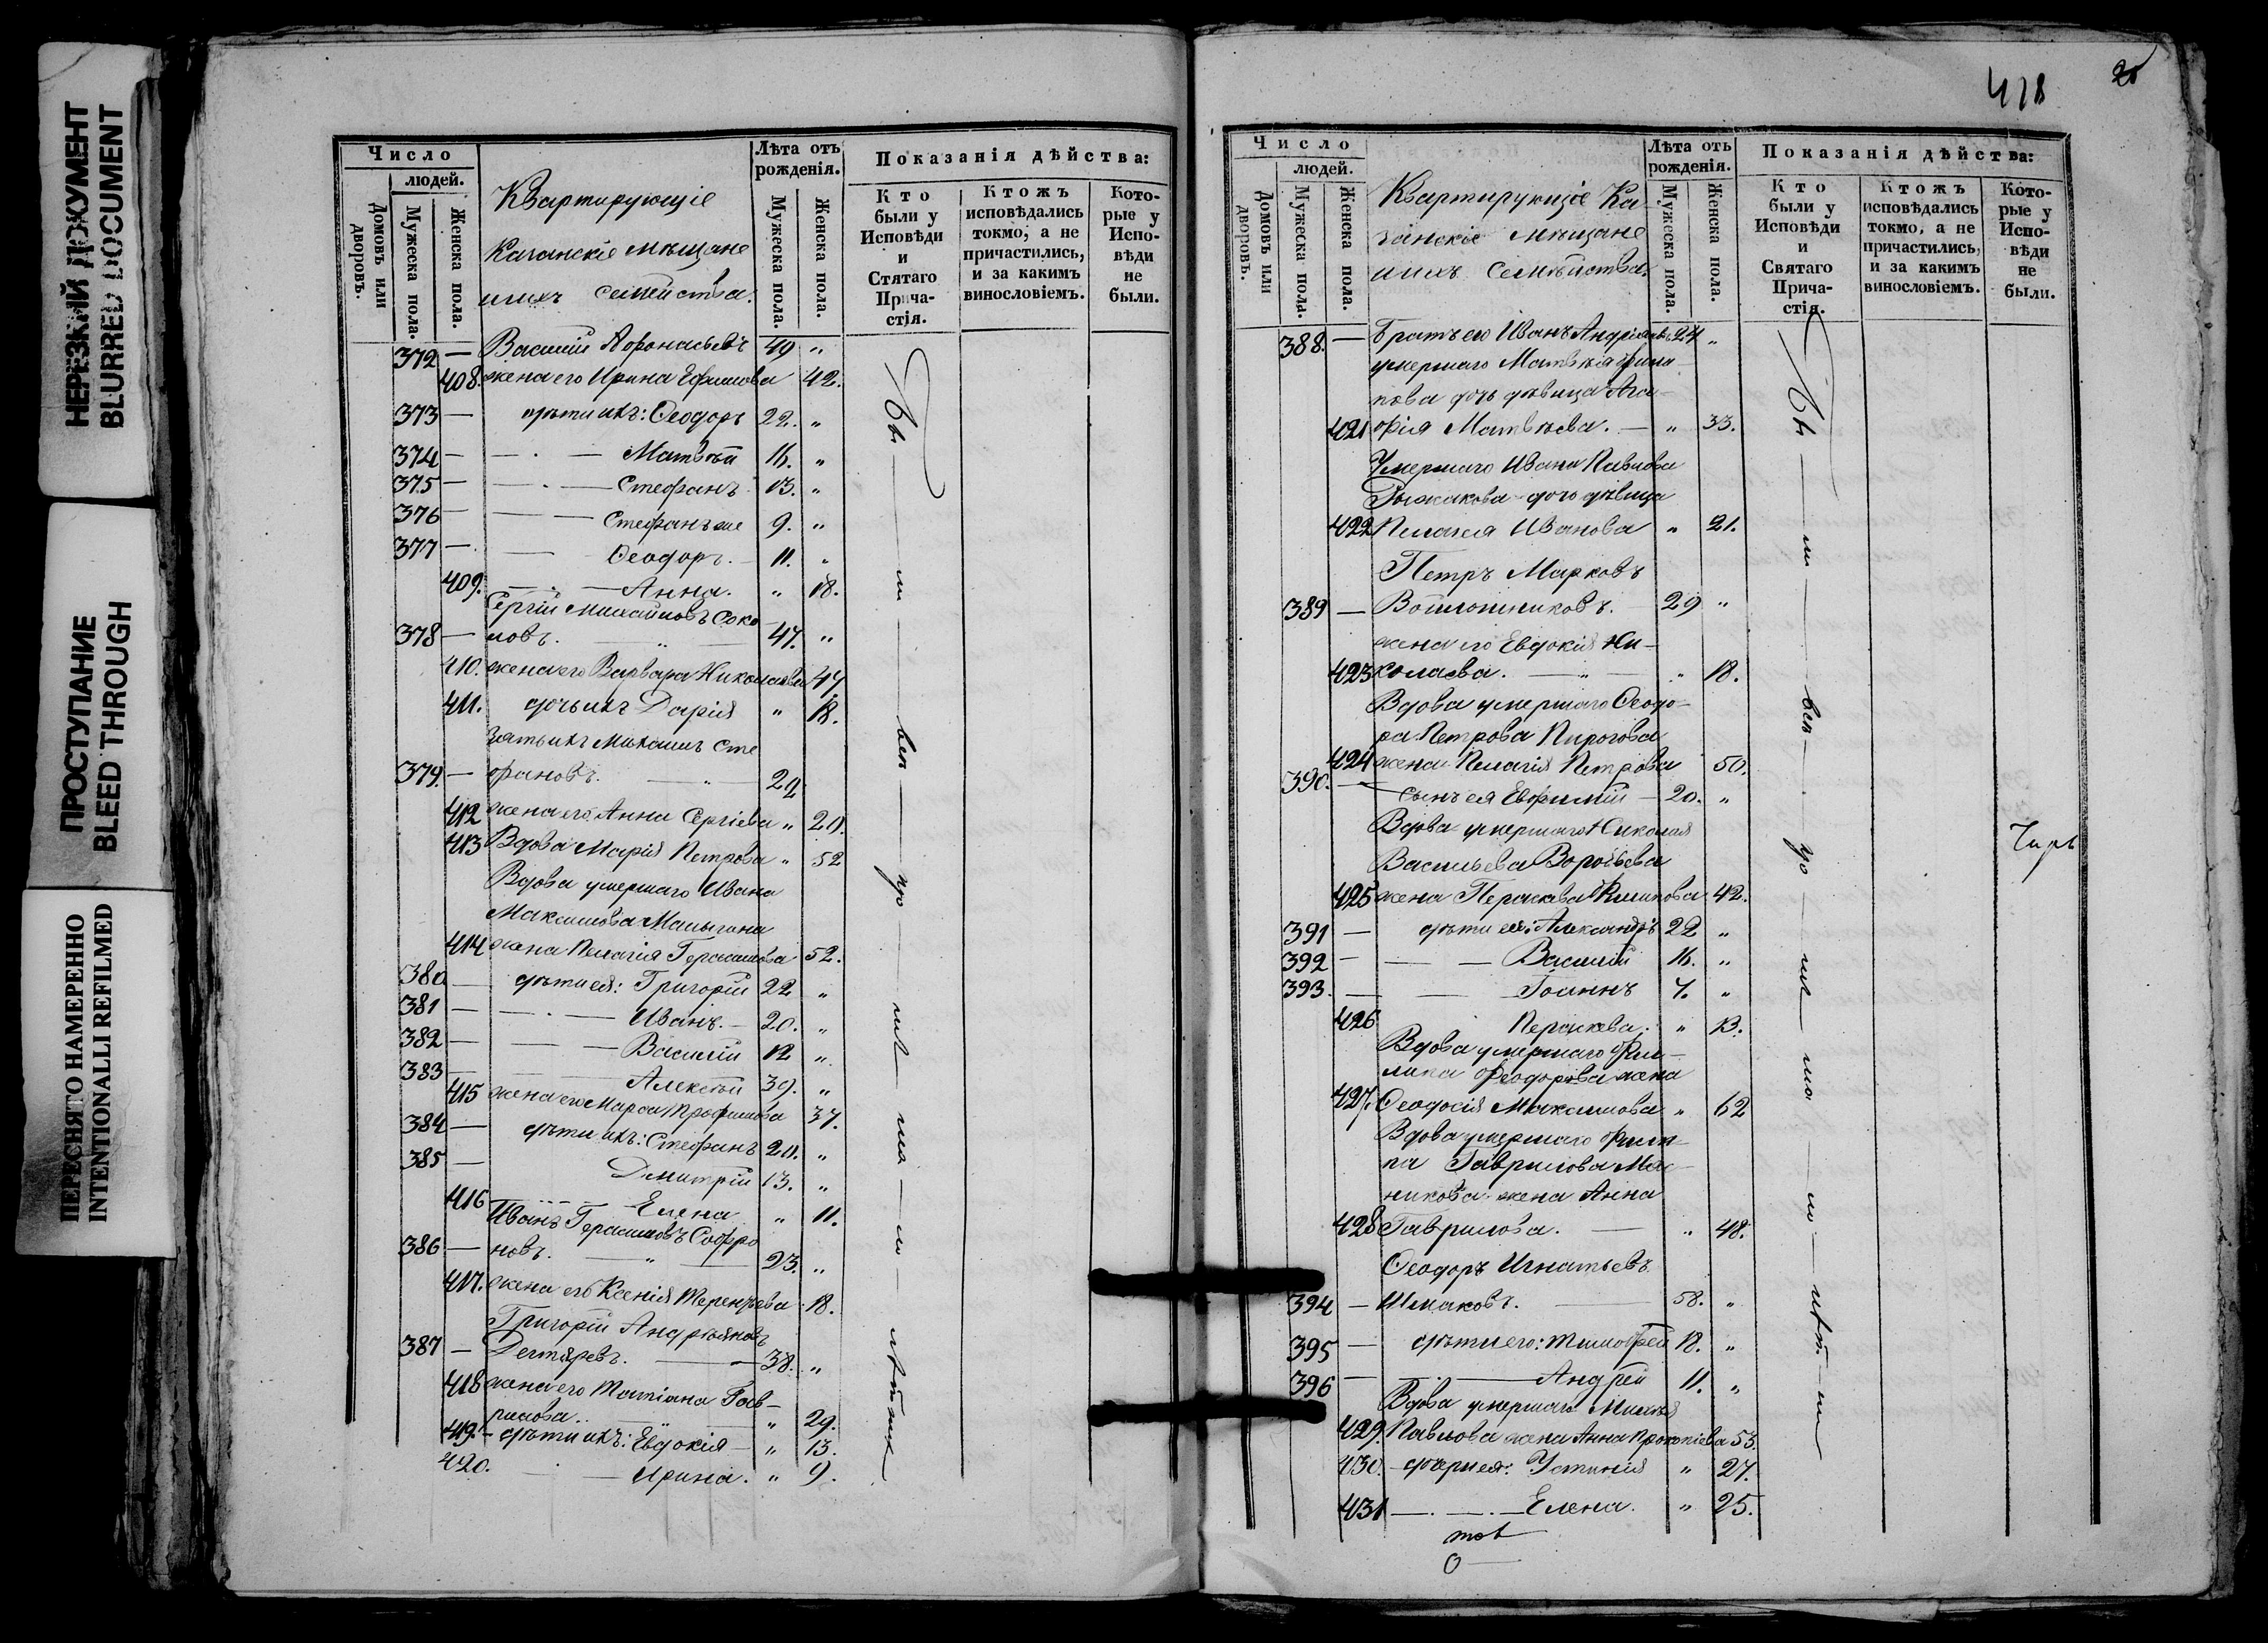 НЕРЕЗКИЙ ДОКУМЕНТ
BLURRED DOCUMENT
ПРОСТУПАНИЕ
BLEED THROUGH
ПЕРЕСНЯТО НАМЕРЕННО
INTENTIONALLI REFILMED
Число
людей.
Домовъ или дворовъ.
Мужеска пола.
Женска пола.
Квартирующіе
Казанскіе мѣщане
и ихъ семейства.
Лѣта отъ рожденія.
Мужеска пола.
Женска пола.
Показанія дѣйства:
Кто были у Исповѣди и Стятаго Прича-стія.
Ктожъ исповѣдались токмо, а не причастились, и за какимъ винословіемъ.
Кото-рые у Испо-вѣди не были.
372 — Василій Афонасьевъ 49 „
408. жена его Ирина Ефимова 42.
373 — дѣти ихъ: Ѳеодоръ 22. „
374 — — Матвѣй 16. „
375 — — Стефанъ 13. „
376 — — Стефанъ же 9. „
377 — — Ѳеодоръ. — 11. „
409. — Анна. „ 18.
Сергій Михайловъ Соко
378 — ловъ. — „ — 47. „
410. жена его Варвара Николаева 47
411. дочь ихъ Дарія „ 18.
Зять ихъ Михаилъ Сте
379. — фановъ. — „ — 29
412 жена его Анна Сергіева „ 20.
413 Вдова Марія Петрова „ 52
Вдова умершаго Ивана
Максимова Малыгина
414 жена Пелагія Герасимова 52.
380 — дѣти ея: Григорій 22 „
381 — — Иванъ. — 20. „
382 — — Василій 12 „
383 — — Алексѣй 39. „
415 жена его Марѳа Трофимова 37.
384 — дѣти ихъ: Стефанъ 20. „
385 — Димитрій 13. „
416 Елена „ 11.
Иванъ Герасимовъ Софро
386 — новъ. — „ — 23. „
417. жена его Ксенія Терентьева 18.
Григорій Андреяновъ
387 — Дегтяревъ. — 38. „
418 жена его Татіана Гав-
рилова. „ 29.
419. — дѣти ихъ: Евдокія — „ 13.
420. — Ирина. „ 9.
Бы — ли — вси — у — ис — по — вѣ
418
Число
людей.
Домовъ или дворовъ.
Мужеска пола.
Женска пола.
Квартирующіе Ка-
занскіе мѣщане
и ихъ семѣйства.
Лѣта отъ рожденія.
Мужеска пола.
Женска пола.
Показанія дѣйства:
Кто были у Исповѣди и Святаго Прича-стія.
Ктожъ исповѣдались токмо, а не причастились, и за какимъ винословіемъ.
Кото-рые у Испо-вѣди не были.
388. — братъ его Иванъ Андріяновъ 24 „
умершаго Матвѣя Фили
пова дочь дѣвица Ага-
421 фія Матвѣева. — „ 33.
Умершаго Ивана Павлова
Рыжакова дочь дѣвица
422 Пелагея Иванова „ 21.
Петръ Марковъ
389 — Войлошниковъ. 29 „
жена его Евдокія Ни-
423 колаева. — „ — „ 18.
Вдова умершаго Ѳеодо-
ра Петрова Пирогова
424 жена Пелагія Петрова 50.
390. — сынъ ея Евфимій — 20. „
Вдова умершаго Николая
Васильева Воробьева
425 жена Параскева Филипова 42.
391 — дѣти ея: Александръ 22 „
392 — — Василій 16. „
393. — Іоаннъ 7. „
426 Параскева. „ 13.
Вдова умершаго Фи-
липа Феодорова жена
427. Ѳеодосія Максимова „ 62
Вдова умершаго Филип-
па Гаврилова Мас-
никова жена Анна
428 Гаврилова. — „ 48.
Ѳеодоръ Игнатьевъ
394 — Шмаковъ. — 58. „
395 — дѣти его: Тимофей 18. „
396 — — Андрей 11. „
Вдова умершаго Михея
429. Павлова жена Анна Прокопіева 53.
430. — дочери ея: Устинія „ 27.
431 — — Елена. „ 25.